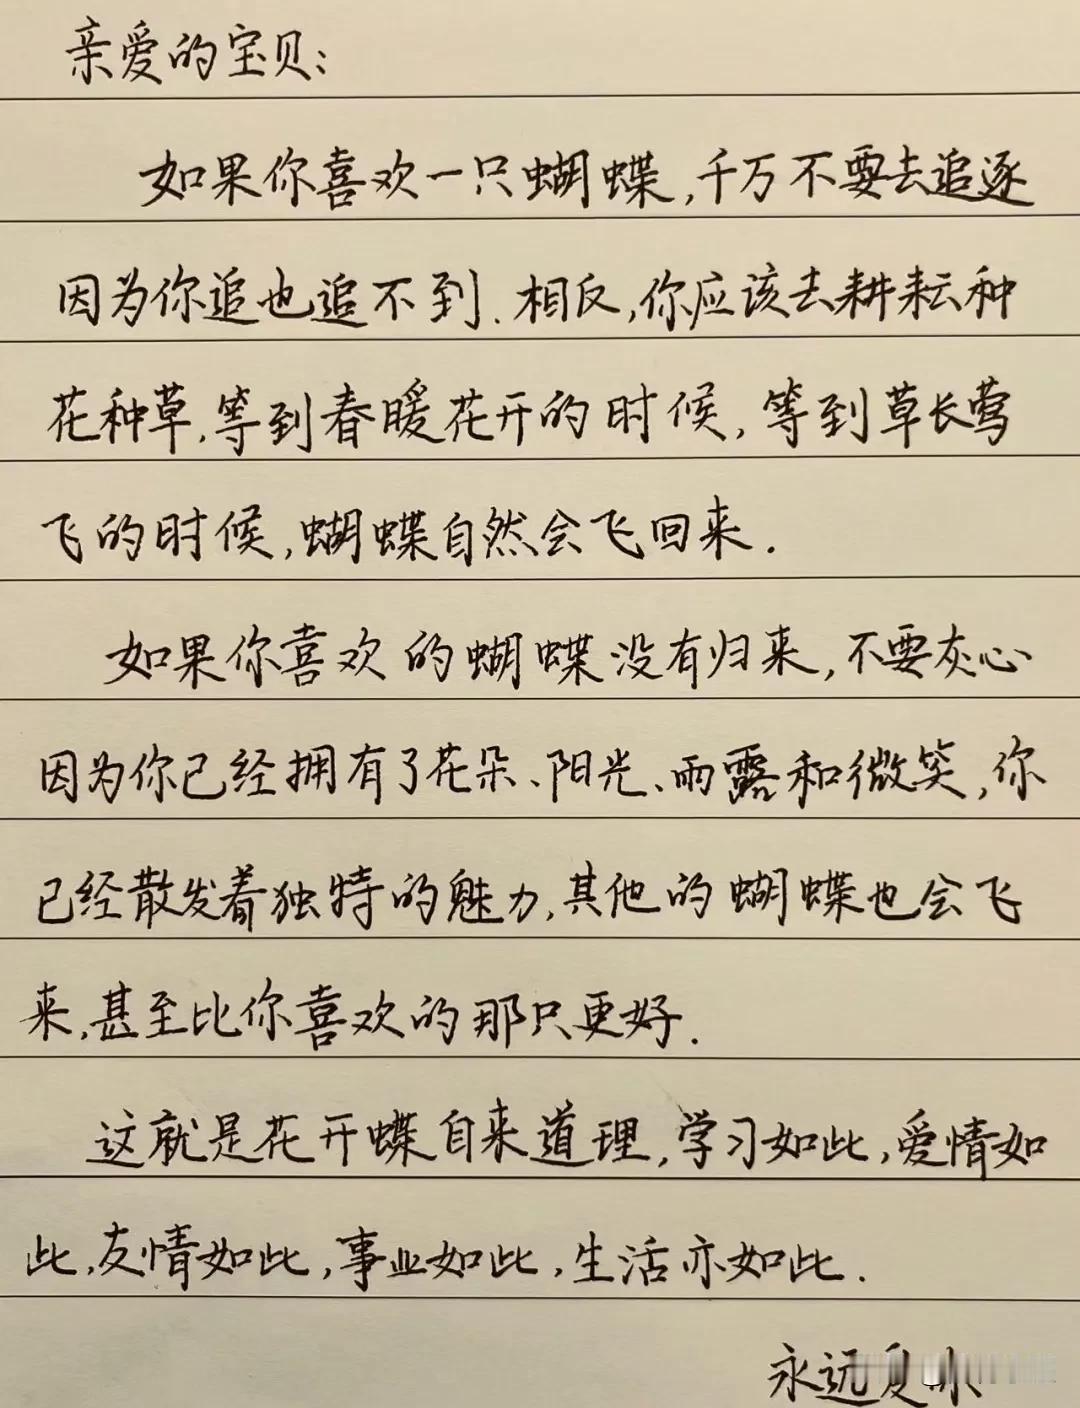 亲爱的宝贝：
如果你喜欢一只蝴蝶,千万不要去追逐
因为你追也追不到.相反,你应该去耕耘种
花种草,等到春暖花开的时候,等到草长莺
飞的时候,蝴蝶自然会飞回来.
如果你喜欢的蝴蝶没有归来,不要灰心
因为你已经拥有了花朵、阳光、雨露和微笑,你
已经散发着独特的魅力,其他的蝴蝶也会飞
来,甚至比你喜欢的那只更好.
这就是花开蝶自来道理,学习如此,爱情如
此,友情如此,事业如此,生活亦如此.
永远